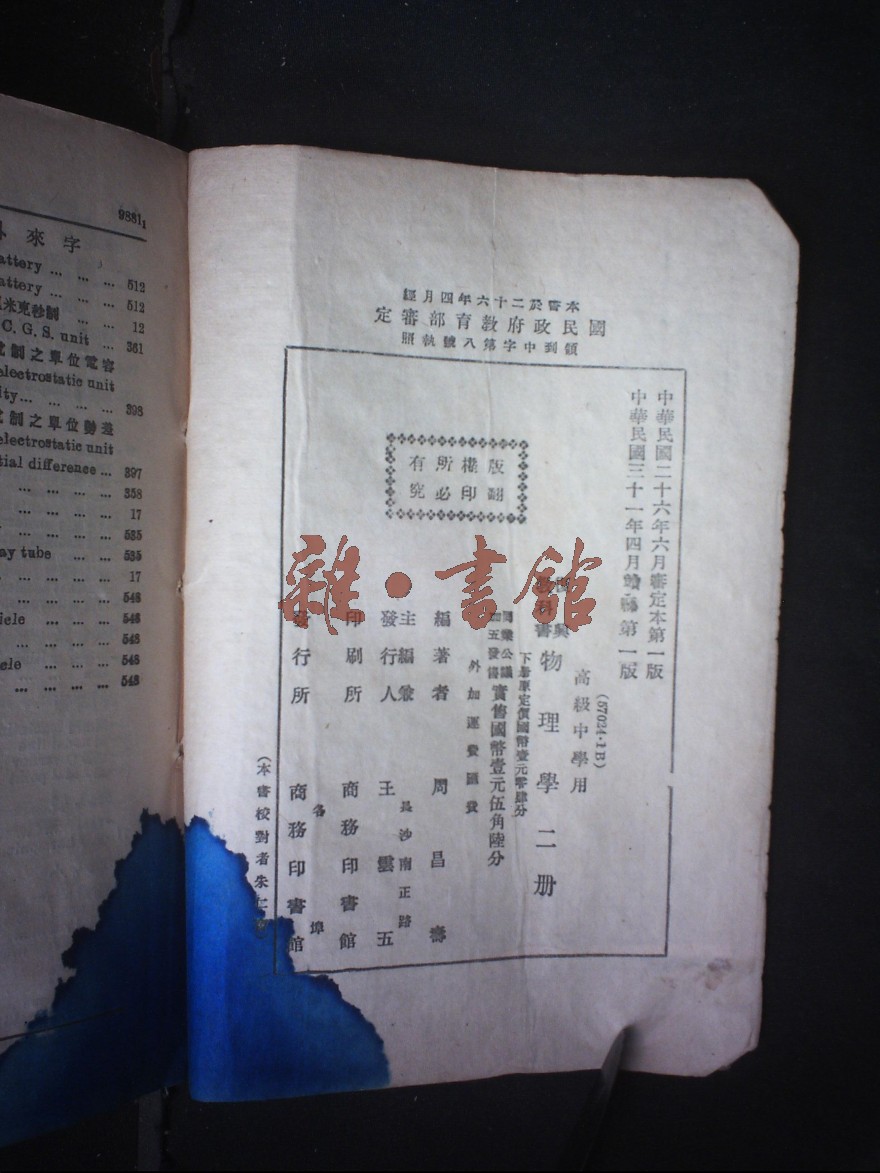 9881₁
來字
attery ... ... ... 512
attery ... ... ... 512
米克秒制 ... ... 12
C. G. S. unit ... 361
制之單位電容
electrostatic unit
ity... ... ... ... 398
制之單位動差
electrostatic unit
tial difference ... 397
... ... ... ... 358
... ... ... ... 17
... ... ... ... 535
ay tube ... ... 535
... ... ... ... 17
... ... ... ... 548
icle ... ... ... 548
... ... ... ... 548
icle ... ... ... 548
... ... ... ... 548
本書於二十六年四月經
國民政府教育部審定
領到中字第八號執照
中華民國二十六年六月審定本第一版
中華民國三十一年四月贛縣第一版
版權所有
翻印必究
(57024·1B)
高級中學用
復興教科書
物理學二册
下册原定價國幣壹元零肆分
同業公議加五發售
實售國幣壹元伍角陸分
外加運費匯費
編著者 周昌壽
主編兼發行人 王雲五
長沙南正路
印刷所 商務印書館
各埠
發行所 商務印書館
(本書校對者朱仁
雜·書館